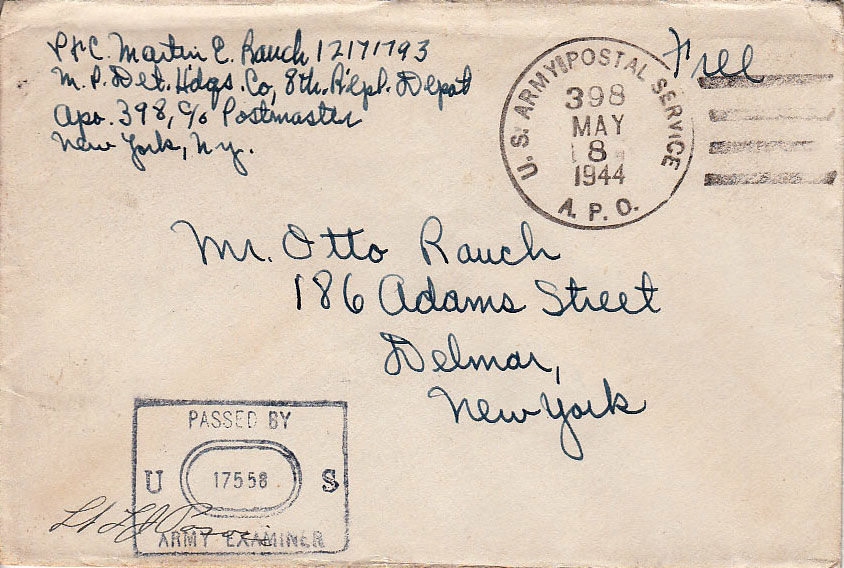 Pfc. Martin E. Rauch 12171793
M.P. Det. Hdqs. Co, 8th. Repl. Depot
Apo. 398, c/o Postmaster
New York, N.y.
Free
U.S. ARMY POSTAL SERVICE
398
MAY
8
1944
A.P.O.
Mr. Otto Rauch
186 Adams Street
Delmar,
New York
PASSED BY
U 17558 S
ARMY EXAMINER
Lt